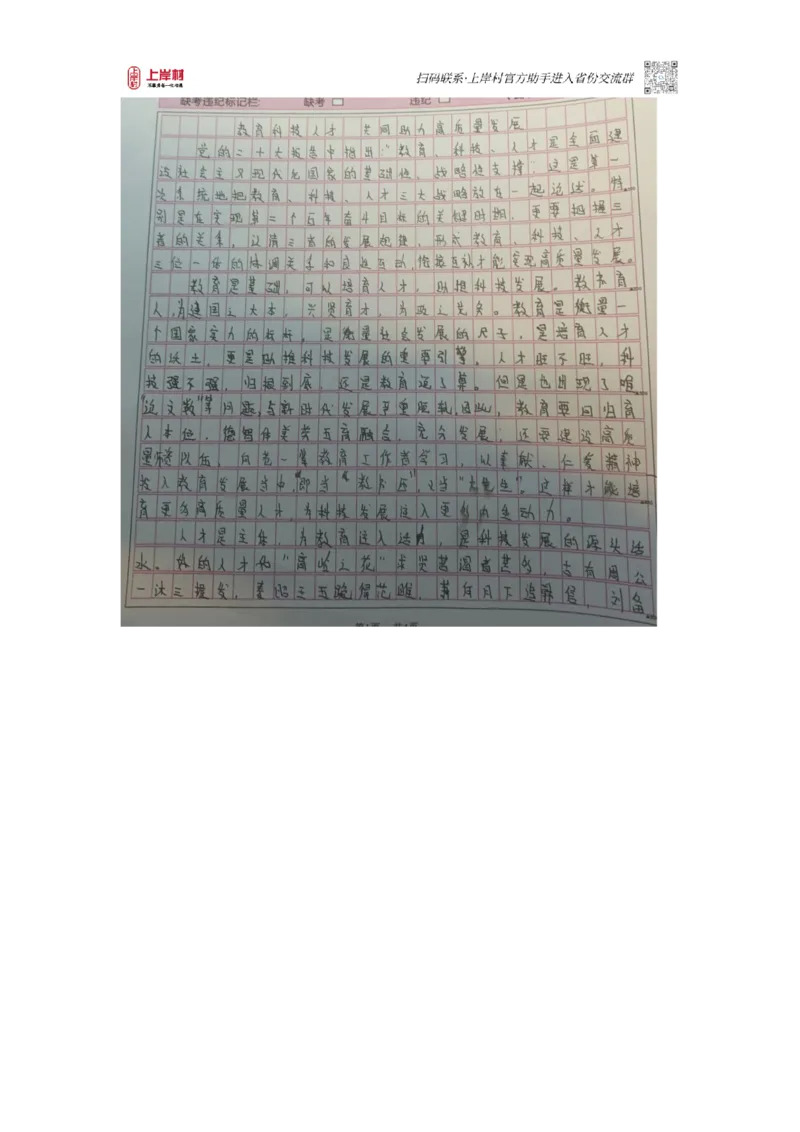 上岸村
扫码联系·上岸村官方助手进入省份交流群
缺考违纪标记栏: 缺考 违纪
教育科技人才 共同助力高质量发展
党的二十大报告中指出:"教育、科技、人才是全面建
设社会主义现代化国家的基础性、战略性支撑",这是第一
次系统地把教育、科技、人才三大战略放在一起论述。特
别是在实现第二个百年奋斗目标的关键时期,更要把握三
者的关系,认清三者的发展规律,形成教育、科技、人才
三位一体的协调关系和良性互动,才能实现高质量发展。
教育是基础,可以培育人才,助推科技发展。教书育
人,为建国之大本,兴贤育才,为政之先务。教育是衡量一
个国家实力的标杆,是衡量社会发展的尺子,是培育人才
的沃土,更是助推科技发展的重要引擎。人才旺不旺,科
技强不强,归根到底,还是教育说了算。但是也出现了唯
"论文数"等问题,与新时代发展严重脱轨,因此,教育要回归育
人本位,德智体美劳五育融合,充分发展;还要建设高质
量师资队伍,向老一辈教育工作者学习,以奉献、仁爱精神
投入教育发展当中,即当"教书匠",又当"大先生"。这样才能培
育更多高质量人才,为科技发展注入更多内生动力。
人才是主体,为教育注入活力,是科技发展的源头活
水。我的人才似"高岭之花"求贤若渴者甚多,古有周公
一沐三握发,秦昭王五跪得范雎,萧何月下追韩信,刘备